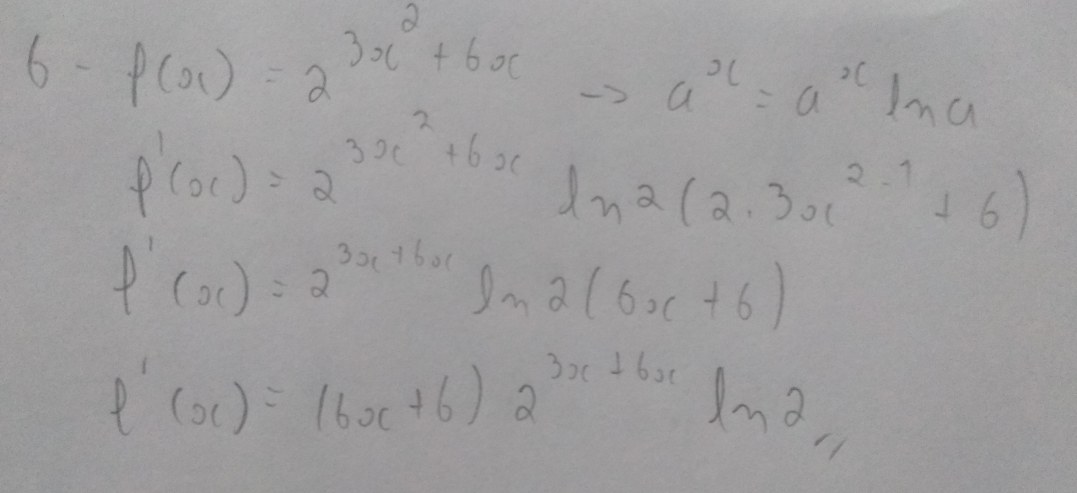 6 - f(x) = 2^{3x^2 + 6x} -> a^x = a^x ln a
f'(x) = 2^{3x^2 + 6x} ln 2 (2 . 3x^{2-1} + 6)
f'(x) = 2^{3x + 6x} ln 2 (6x + 6)
f'(x) = (6x + 6) 2^{3x + 6x} ln 2 //